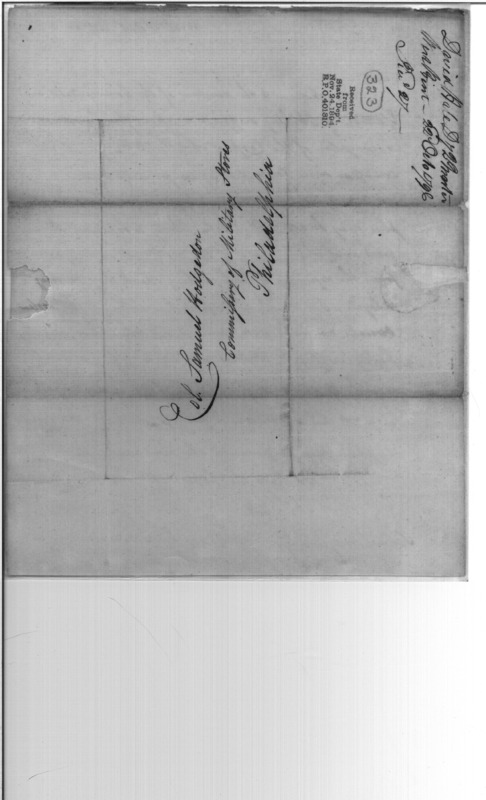 David Hale D Q Master
West Point 22 Oct 1796
Recd 27
323
Received
from
State Dep't.
Nov. 24, 1894,
R.P.O. 401810.
Col. Samuel Hodgdon
Commissary of Military Stores
Philadelphia